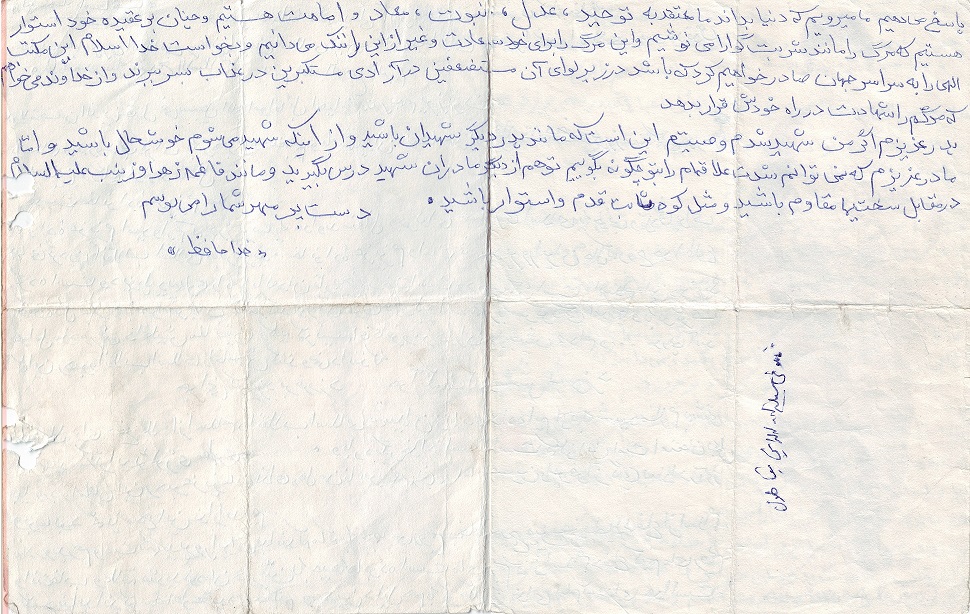 پاسخ می‌دهیم ما میرویم که دنیا بداند ما معتقد به توحید، عدل، نبوت، معاد و امامت هستیم و چنان بر عقیده خود استوار
هستیم که مرگ را مانند شربت گوارا می نوشیم و این مرگ را برای خود سعادت و غیر از این را ننگ می دانیم و بخواست خدا اسلام این مکتب
الهی را به سراسر جهان صادر خواهیم کرد که باشد در زیر لوای آن مستضعفین در آزادی مستکبرین در عذاب سر ببرند و از خداوند می خواهم
که مرگم را شهادت در راه خودش قرار بدهد
پدر عزیزم اگر من شهید شدم وصیتم این است که مانند پدر دیگر شهیدان باشید و از اینکه شهید می شوم خوشحال باشید و امّا
مادر عزیزم که نمی توانم شدت علاقه‌ام را بتو چگونه گویم تو هم از دیگر مادران شهید درس بگیرید و مانند فاطمه زهرا و زینب علیه السلام
در مقابل سختیها مقاوم باشید و مثل کوه ثابت قدم و استوار باشید.
دست پر مهر شما را می بوسم
«خداحافظ»